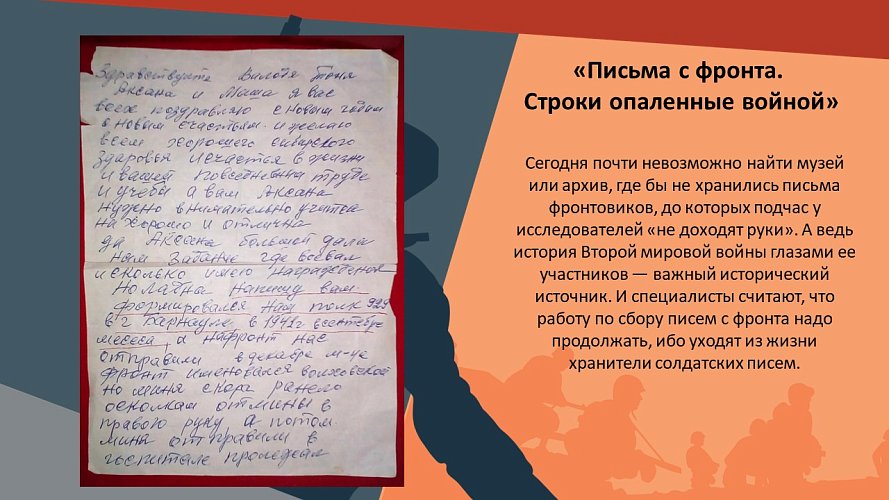 Здравствуйте Вилодя Тоня
Аксана и Маша я вас
всех поздравляю с новым годом
с новым счастьем и желаю
всем хорошего сибирского
здоровья и счастья в жизни
и вашей повседневны труде
и учёбы а вам Аксана
нужно внимательно учится
на хорошо и отлична
да Аксана большой дали
нам задание где воевал
и сколько имею награждения
но ладна напишу вам
формировался наш полк 929
в г Барнауле в 1941г всентебре
месеса, а нафронт нас
отправили в декабре м-це
фронт именовался волховской
но миня скора ранело
осколкам отмины в
правою руку, а потом
мина отправили в
госпитале пролежал
«Письма с фронта.
Строки опаленные войной»
Сегодня почти невозможно найти музей
или архив, где бы не хранились письма
фронтовиков, до которых подчас у
исследователей «не доходят руки». А ведь
история Второй мировой войны глазами ее
участников — важный исторический
источник. И специалисты считают, что
работу по сбору писем с фронта надо
продолжать, ибо уходят из жизни
хранители солдатских писем.